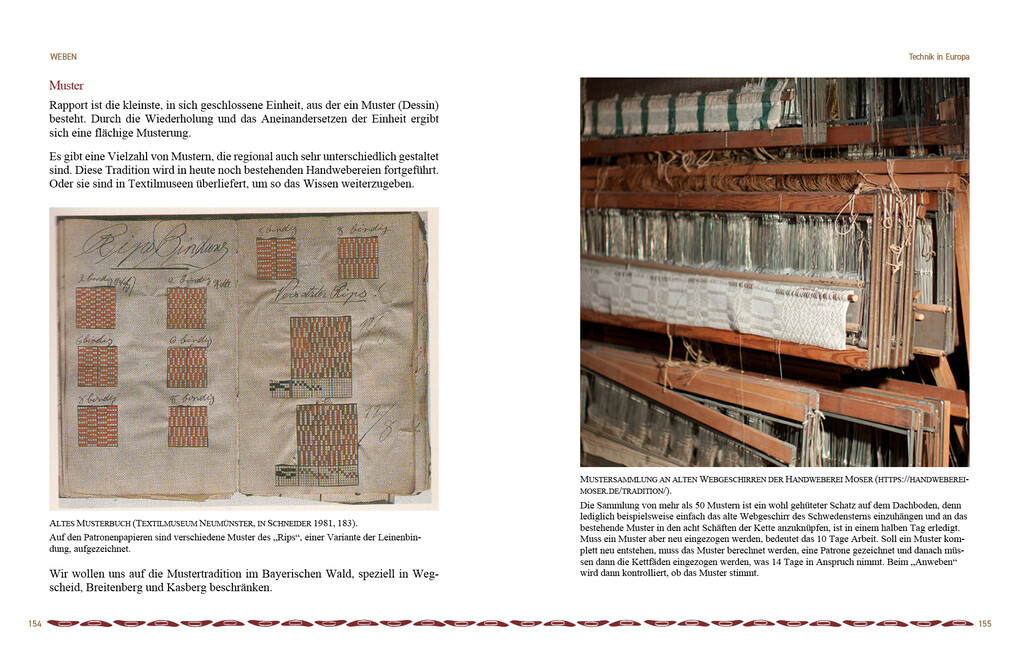 WEBEN
Muster
Rapport ist die kleinste, in sich geschlossene Einheit, aus der ein Muster (Dessin)
besteht. Durch die Wiederholung und das Aneinandersetzen der Einheit ergibt
sich eine flächige Musterung.
Es gibt eine Vielzahl von Mustern, die regional auch sehr unterschiedlich gestaltet
sind. Diese Tradition wird in heute noch bestehenden Handwebereien fortgeführt.
Oder sie sind in Textilmuseen überliefert, um so das Wissen weiterzugeben.
Rips Bindung.
2 bindig
2 bindig Kette!
6 bindig
6 bindig
8 bindig
8 bindig
8 bindig
Versetzter Rips!
ALTES MUSTERBUCH (TEXTILMUSEUM NEUMÜNSTER, IN SCHNEIDER 1981, 183).
Auf den Patronenpapieren sind verschiedene Muster des „Rips“, einer Variante der Leinenbin-
dung, aufgezeichnet.
Wir wollen uns auf die Mustertradition im Bayerischen Wald, speziell in Weg-
scheid, Breitenberg und Kasberg beschränken.
154
Technik in Europa
MUSTERSAMMLUNG AN ALTEN WEBGESCHIRREN DER HANDWEBEREI MOSER (HTTPS://HANDWEBEREI-
MOSER.DE/TRADITION/).
Die Sammlung von mehr als 50 Mustern ist ein wohl gehüteter Schatz auf dem Dachboden, denn
lediglich beispielsweise einfach das alte Webgeschirr des Schwedensterns einzuhängen und an das
bestehende Muster in den acht Schäften der Kette anzuknüpfen, ist in einem halben Tag erledigt.
Muss ein Muster aber neu eingezogen werden, bedeutet das 10 Tage Arbeit. Soll ein Muster kom-
plett neu entstehen, muss das Muster berechnet werden, eine Patrone gezeichnet und danach müs-
sen dann die Kettfäden eingezogen werden, was 14 Tage in Anspruch nimmt. Beim „Anweben“
wird dann kontrolliert, ob das Muster stimmt.
155